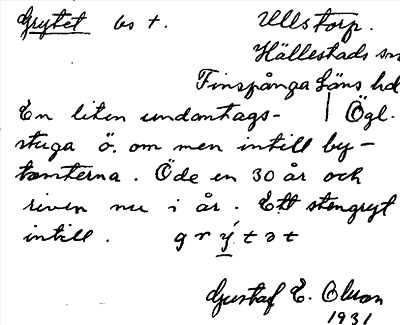 Grytet bs t. Ullstorp.
Hällestads sn
Finspånga läns hd
En liten undantags- | Ögl.
stuga ö. om men intill by-
tomterna. Öde en 30 år och
riven nu i år. Ett stengryt
intill. g r ý t ə t
Gustaf E. Olson
1931